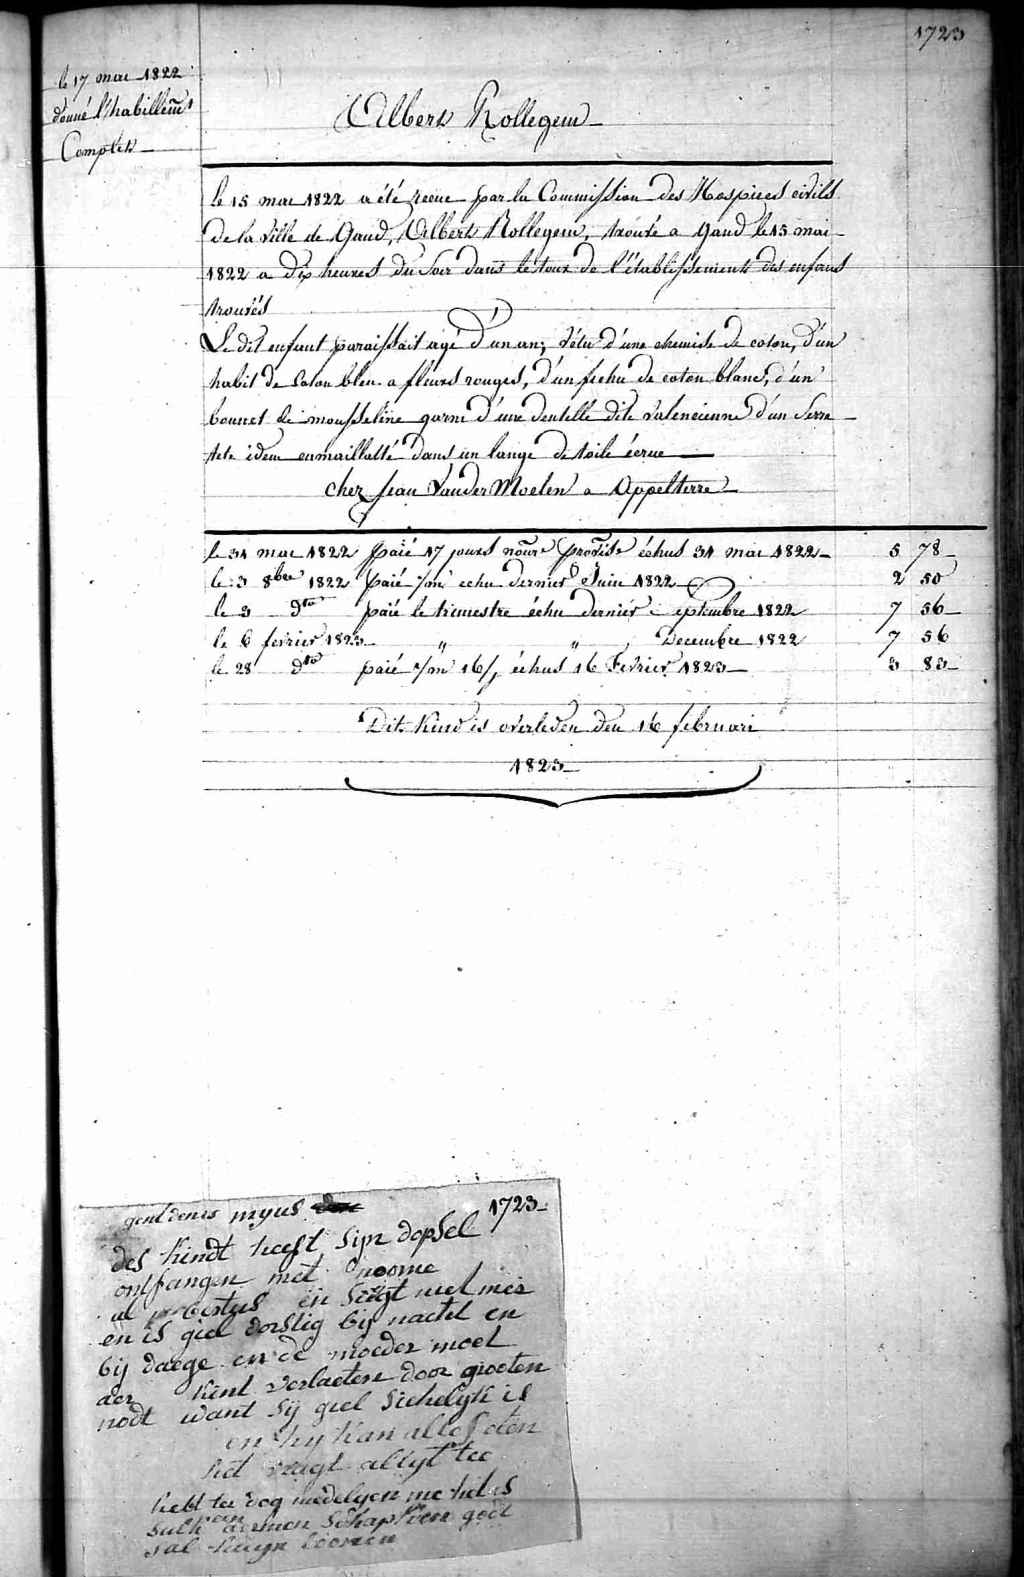 1723
le 17 mai 1822
donné l'habillemt
Complet
Albert Rollegem
le 15 mai 1822 a été recue par la Commission des Hospices civils
de la Ville de Gand, Albert Rollegem, trouvé a Gand le 15 mai
1822 a dix heures du Soir dans le tour de l'établissement des enfans
trouvés
Le dit enfant paraissait agé d'un an, vétu d'une chemise de coton, d'un
habit de coton bleu a fleurs rouges, d'un fichu de coton blanc, d'un
bonnet de mousseline garni d'une dentelle dite valencienne d'un Serre
tete idem enmaillotté dans un lange de toile écrue
chez Jean VanderMoelen a Appelterre
le 31 mai 1822 paié 17 jours nourre provise échus 31 mai 1822 5 78
le 3 8bre 1822 paié 1/m echu dernier Juin 1822 2 50
le 3 dto paié le trimestre échu dernier Septembre 1822 7 56
le 6 fevrier 1823 " " Decembre 1822 7 56
le 28 dto paié 1/m 16/j échus 16 Fevrier 1823 3 83
Dit Kind is overleden den 16 februari
1823
gent denis myus 1723
des kindt heeft sijn dopsel
ontfangen met noome
albertus en seegt niet mer
en is giel dorstig bij nachtt en
bij daege en de moeder moet
aer kint verlaeten door grooten
nodt want sij giel siekelijk is
en hij kan alles eten
het vragt altyt tee
hebt tee dog medelyen me het is
sulk een aermen schaptien godt
sal huijn loonen